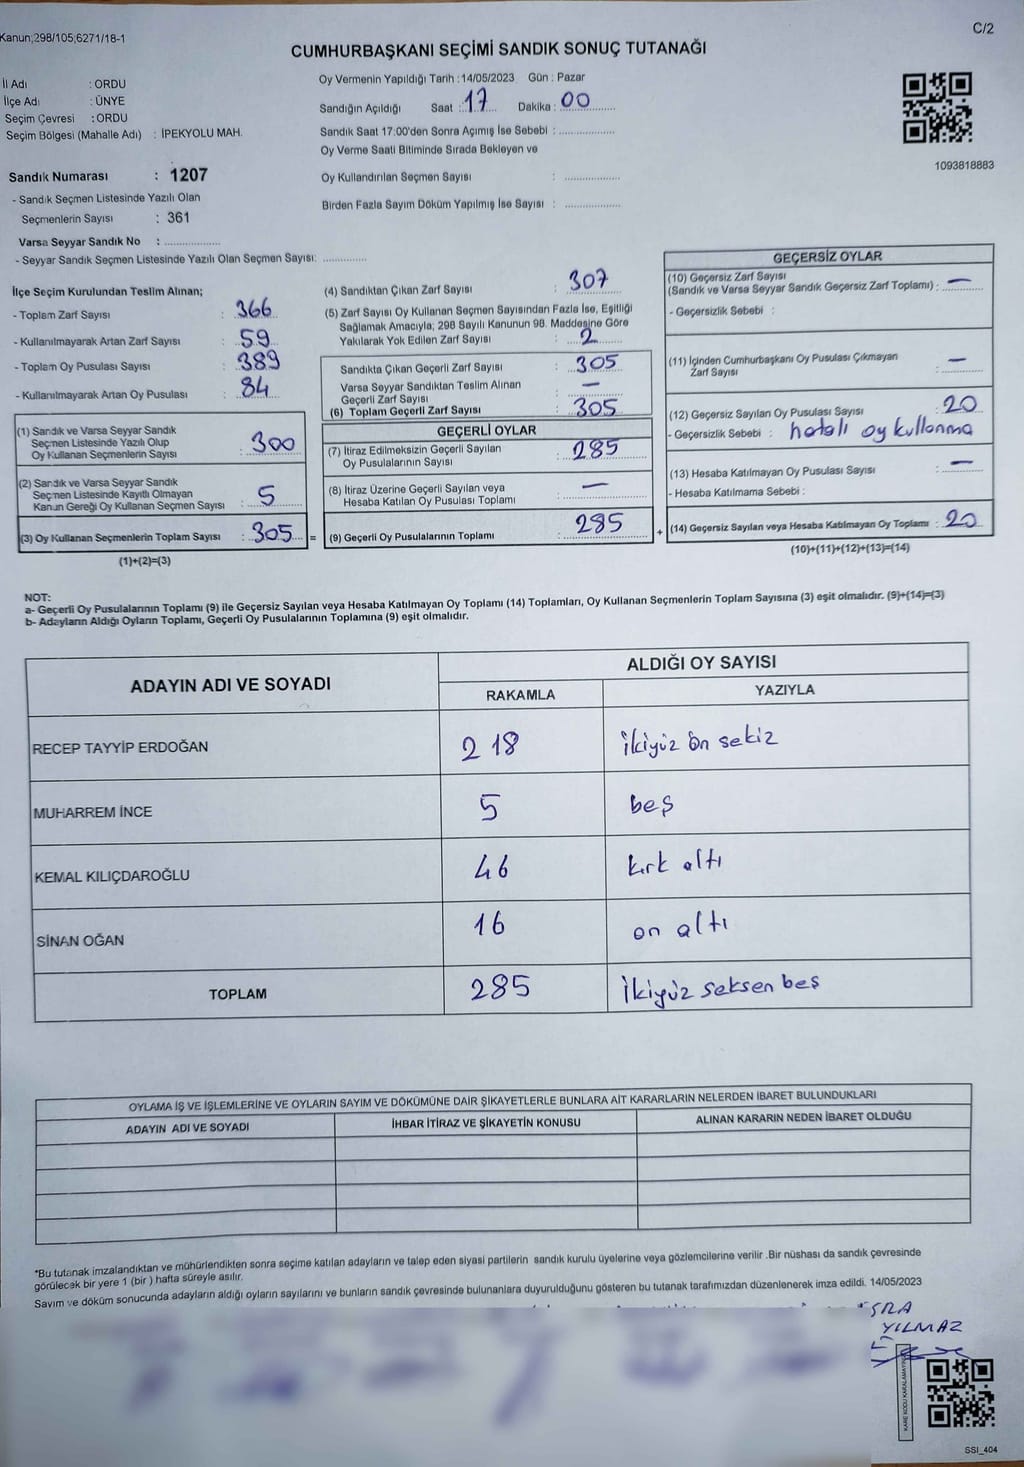 Kanun;298/105;6271/18-1
C/2
CUMHURBAŞKANI SEÇİMİ SANDIK SONUÇ TUTANAĞI
İl Adı : ORDU
İlçe Adı : ÜNYE
Seçim Çevresi : ORDU
Seçim Bölgesi (Mahalle Adı) : İPEKYOLU MAH.
Sandık Numarası : 1207
- Sandık Seçmen Listesinde Yazılı Olan
Seçmenlerin Sayısı : 361
Varsa Seyyar Sandık No : ..................
- Seyyar Sandık Seçmen Listesinde Yazılı Olan Seçmen Sayısı: .............
Oy Vermenin Yapıldığı Tarih : 14/05/2023 Gün : Pazar
Sandığın Açıldığı Saat : 17 Dakika : 00
Sandık Saat 17:00'den Sonra Açımış İse Sebebi : ................
Oy Verme Saati Bitiminde Sırada Bekleyen ve
Oy Kullandırılan Seçmen Sayısı : ................
Birden Fazla Sayım Döküm Yapılmış İse Sayısı : ................
1093818883
İlçe Seçim Kurulundan Teslim Alınan;
- Toplam Zarf Sayısı : 366
- Kullanılmayarak Artan Zarf Sayısı : 59
- Toplam Oy Pusulası Sayısı : 389
- Kullanılmayarak Artan Oy Pusulası : 84
(1) Sandık ve Varsa Seyyar Sandık
Seçmen Listesinde Yazılı Olup
Oy Kullanan Seçmenlerin Sayısı : 300
(2) Sandık ve Varsa Seyyar Sandık
Seçmen Listesinde Kayıtlı Olmayan
Kanun Gereği Oy Kullanan Seçmen Sayısı : 5
(3) Oy Kullanan Seçmenlerin Toplam Sayısı : 305 =
(1)+(2)=(3)
(4) Sandıktan Çıkan Zarf Sayısı : 307
(5) Zarf Sayısı Oy Kullanan Seçmen Sayısından Fazla İse, Eşitliği
Sağlamak Amacıyla; 298 Sayılı Kanunun 98. Maddesine Göre
Yakılarak Yok Edilen Zarf Sayısı : 2
Sandıkta Çıkan Geçerli Zarf Sayısı : 305
Varsa Seyyar Sandıktan Teslim Alınan
Geçerli Zarf Sayısı : —
(6) Toplam Geçerli Zarf Sayısı : 305
GEÇERLİ OYLAR
(7) İtiraz Edilmeksizin Geçerli Sayılan
Oy Pusulalarının Sayısı : 285
(8) İtiraz Üzerine Geçerli Sayılan veya
Hesaba Katılan Oy Pusulası Toplamı : —
(9) Geçerli Oy Pusulalarının Toplamı : 285 +
GEÇERSİZ OYLAR
(10) Geçersiz Zarf Sayısı
(Sandık ve Varsa Seyyar Sandık Geçersiz Zarf Toplamı) : —
- Geçersizlik Sebebi :
(11) İçinden Cumhurbaşkanı Oy Pusulası Çıkmayan
Zarf Sayısı : —
(12) Geçersiz Sayılan Oy Pusulası Sayısı : 20
- Geçersizlik Sebebi : hatalı oy kullanma
(13) Hesaba Katılmayan Oy Pusulası Sayısı : —
- Hesaba Katılmama Sebebi :
(14) Geçersiz Sayılan veya Hesaba Katılmayan Oy Toplamı : 20
(10)+(11)+(12)+(13)=(14)
NOT:
a- Geçerli Oy Pusulalarının Toplamı (9) ile Geçersiz Sayılan veya Hesaba Katılmayan Oy Toplamı (14) Toplamları, Oy Kullanan Seçmenlerin Toplam Sayısına (3) eşit olmalıdır. (9)+(14)=(3)
b- Adayların Aldığı Oyların Toplamı, Geçerli Oy Pusulalarının Toplamına (9) eşit olmalıdır.
ADAYIN ADI VE SOYADI
ALDIĞI OY SAYISI
RAKAMLA YAZIYLA
RECEP TAYYİP ERDOĞAN 218 ikiyüz on sekiz
MUHARREM İNCE 5 beş
KEMAL KILIÇDAROĞLU 46 kırk altı
SİNAN OĞAN 16 on altı
TOPLAM 285 ikiyüz seksen beş
OYLAMA İŞ VE İŞLEMLERİNE VE OYLARIN SAYIM VE DÖKÜMÜNE DAİR ŞİKAYETLERLE BUNLARA AİT KARARLARIN NELERDEN İBARET BULUNDUKLARI
ADAYIN ADI VE SOYADI İHBAR İTİRAZ VE ŞİKAYETİN KONUSU ALINAN KARARIN NEDEN İBARET OLDUĞU
*Bu tutanak imzalandıktan ve mühürlendikten sonra seçime katılan adayların ve talep eden siyasi partilerin sandık kurulu üyelerine veya gözlemcilerine verilir .Bir nüshası da sandık çevresinde
görülecek bir yere 1 (bir ) hafta süreyle asılır.
Sayım ve döküm sonucunda adayların aldığı oyların sayılarını ve bunların sandık çevresinde bulunanlara duyurulduğunu gösteren bu tutanak tarafımızdan düzenlenerek imza edildi. 14/05/2023
YILMAZ
KARE KODU KARALAMAYIN
SSI_404